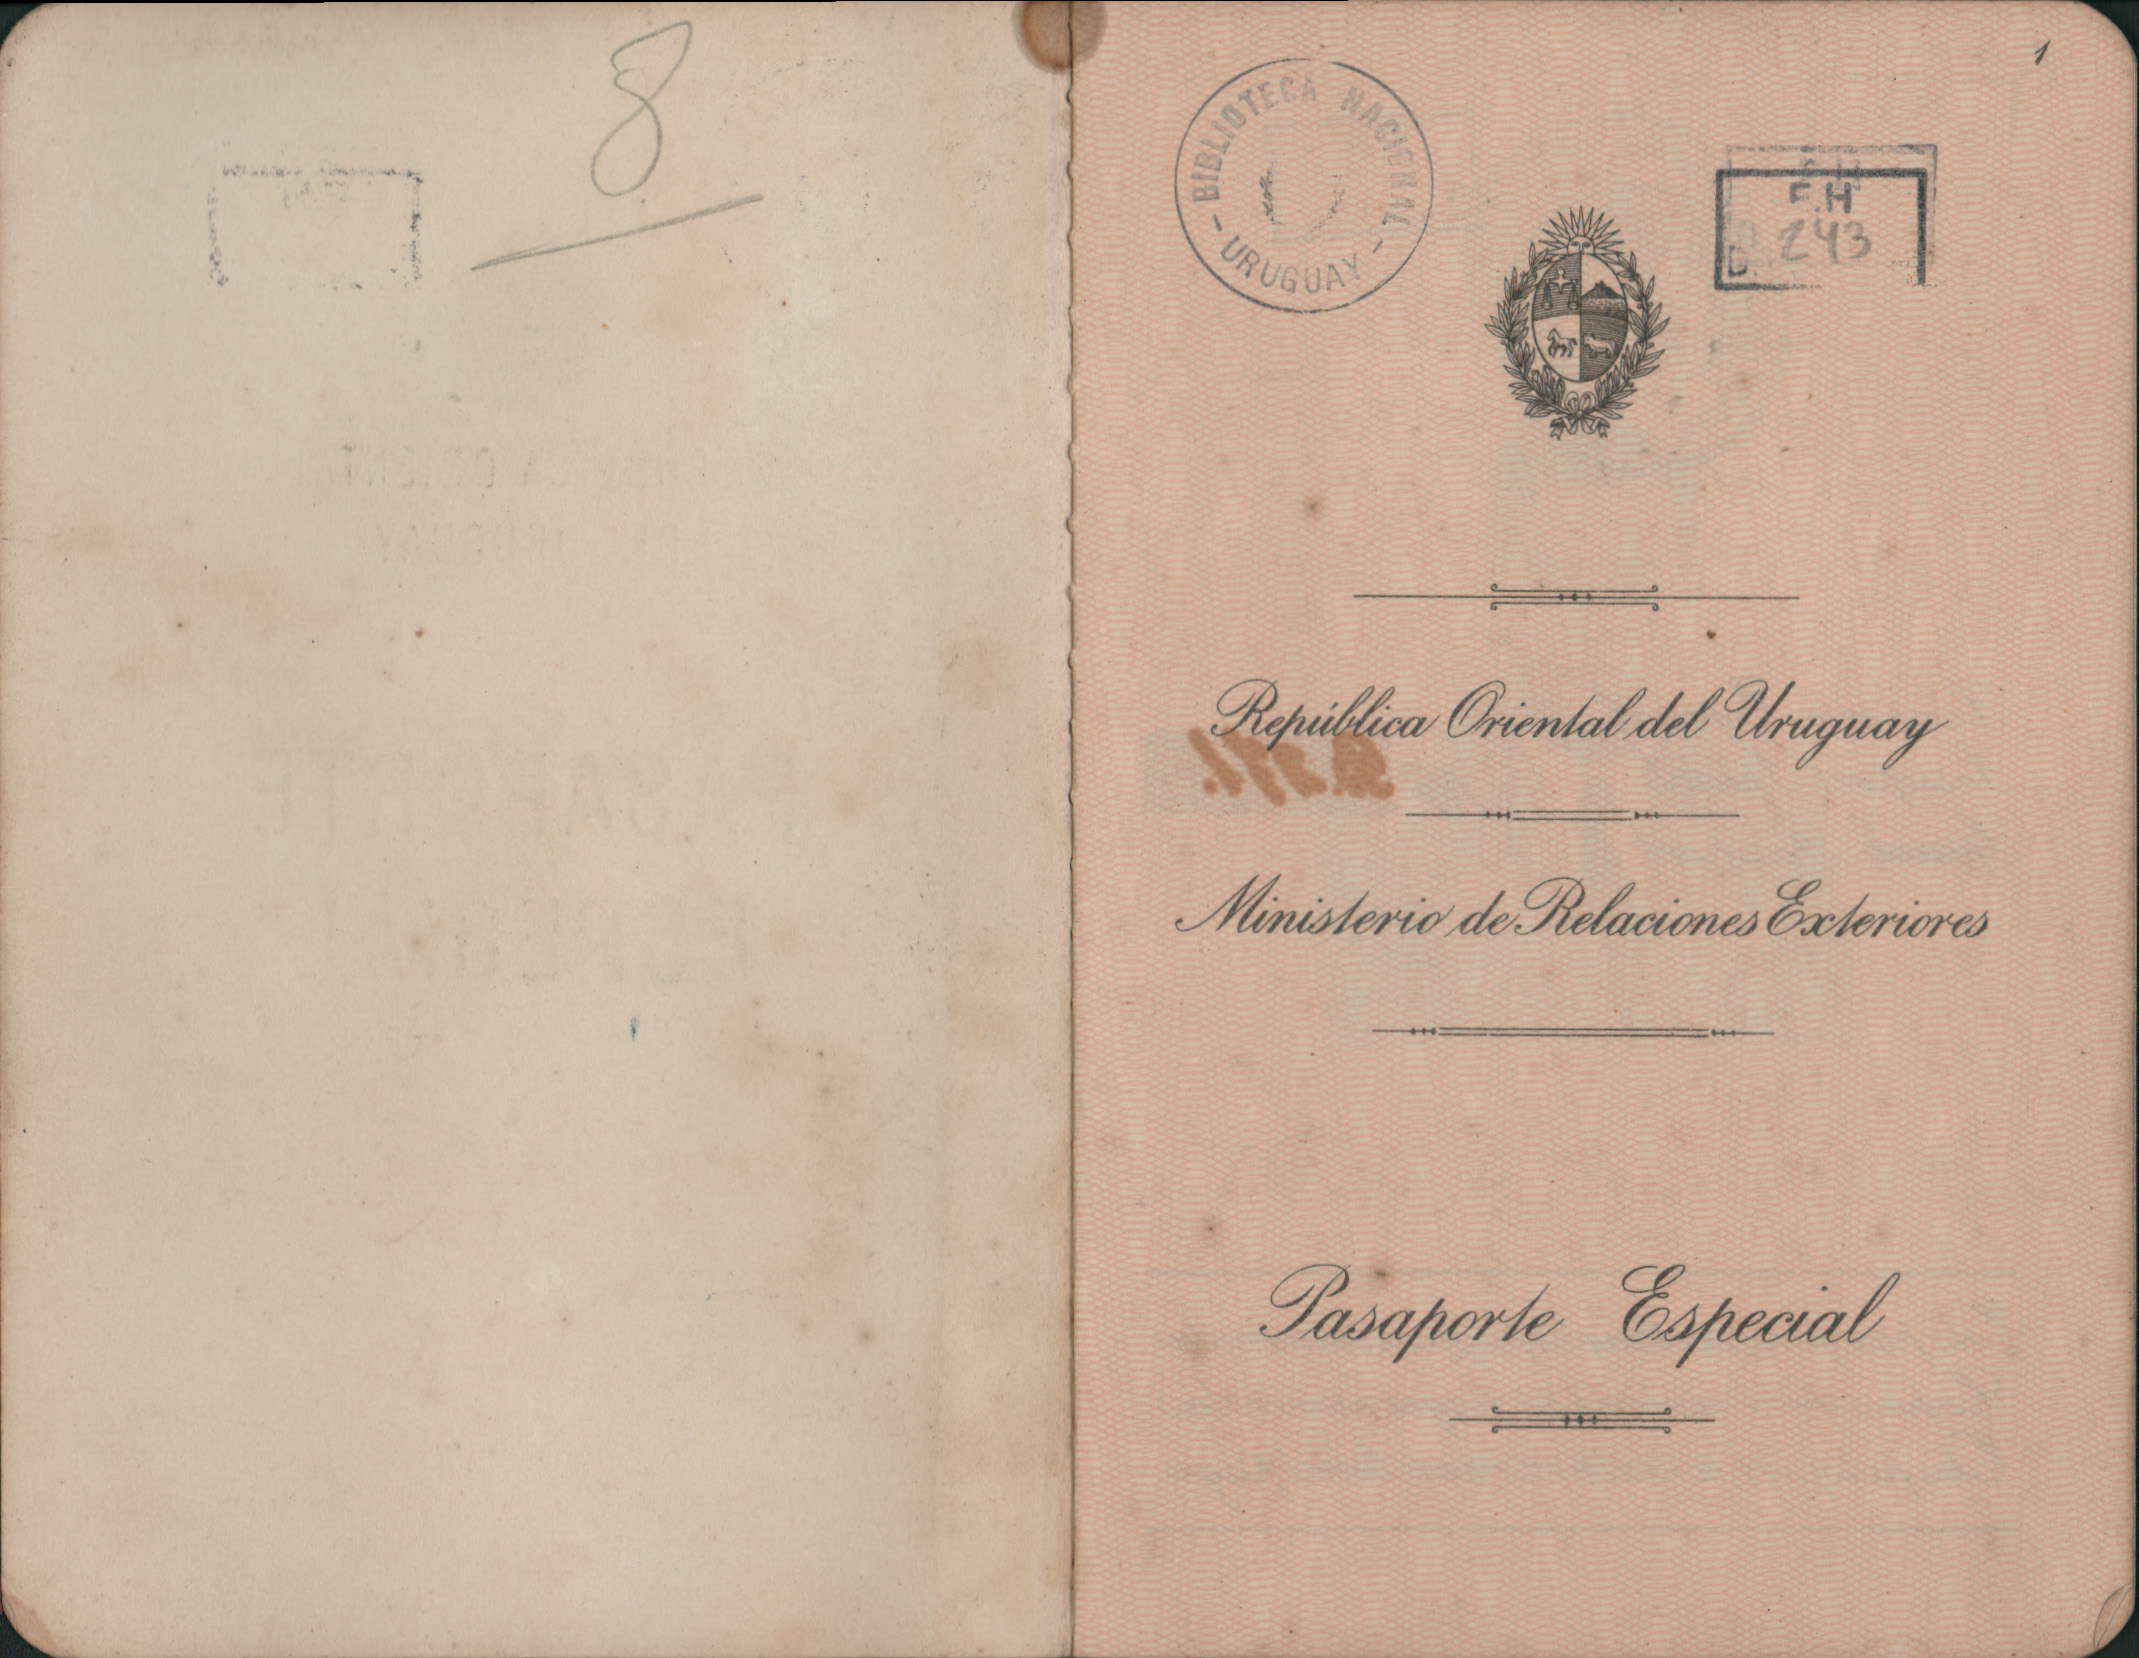 8
1
BIBLIOTECA NACIONAL
- URUGUAY -
F.H
243
República Oriental del Uruguay
Ministerio de Relaciones Exteriores
Pasaporte Especial